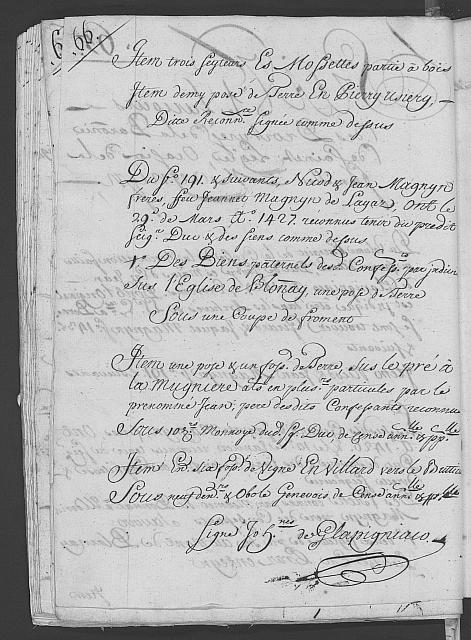 66
Item trois seyteurs Es Mossettes partie à bois
Item demy pose de Terre En Pierry
Dite Reconn.ce signée comme dessus
Du f.o 191. & suivants, Nicod & Jean Magnyn
freres, feu Jeannet Magnyn de Lazar, ont le
29.e de Mars 1427. reconnus tenir du predit
seig.r Duc & des siens comme dessus
1.o Des Biens paternels desd. Confess.ts
sus l'Eglise de Blonay, une pose de Terre
Sous une Coupe de froment
Item une pose & un foss. de Terre, sus le pré à
la Mugniere als en plus.rs particules par le
prenommé Jean, pere desdits Confessants reconnus
Sous Monnoye dud. sg. Duc de Cense ann.lle & pp.lle
Item En six foss. de Vigne En Villard vers le
Sous neuf den.rs & Obole Genevois de Cense ann.lle & pp.lle
Signé Joh.nes de Glapigniaco